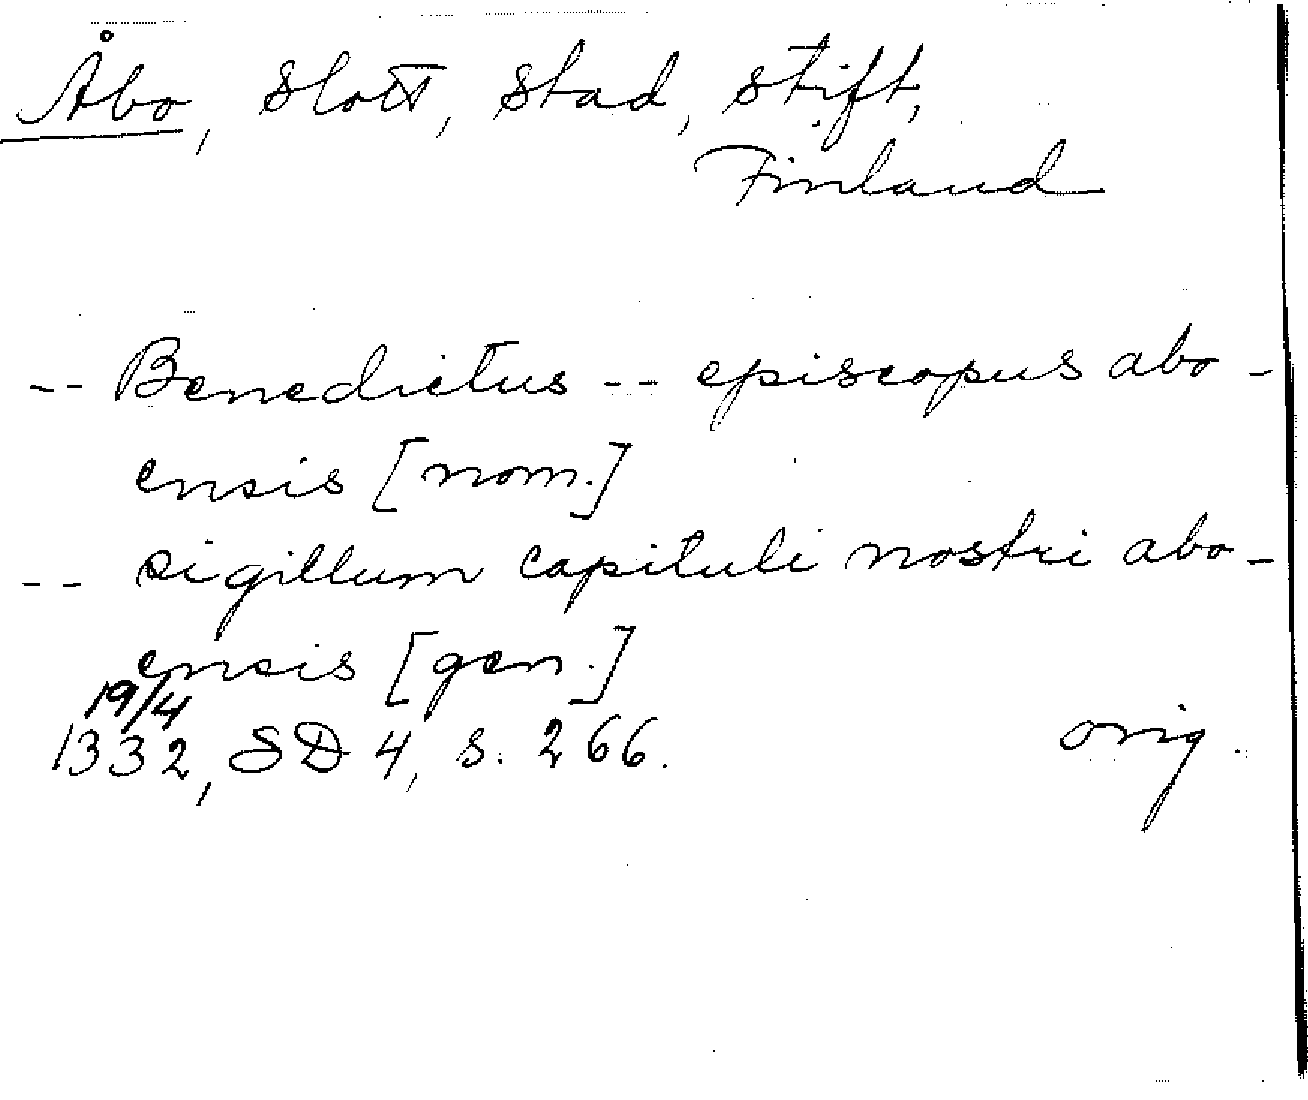 Åbo, slott, stad, stift,
Finland
-- Benedictus -- episcopus abo-
ensis [nom.]
-- sigillum capituli nostri abo-
ensis [gen.]
19/4
1332, SD 4, s. 266. orig.